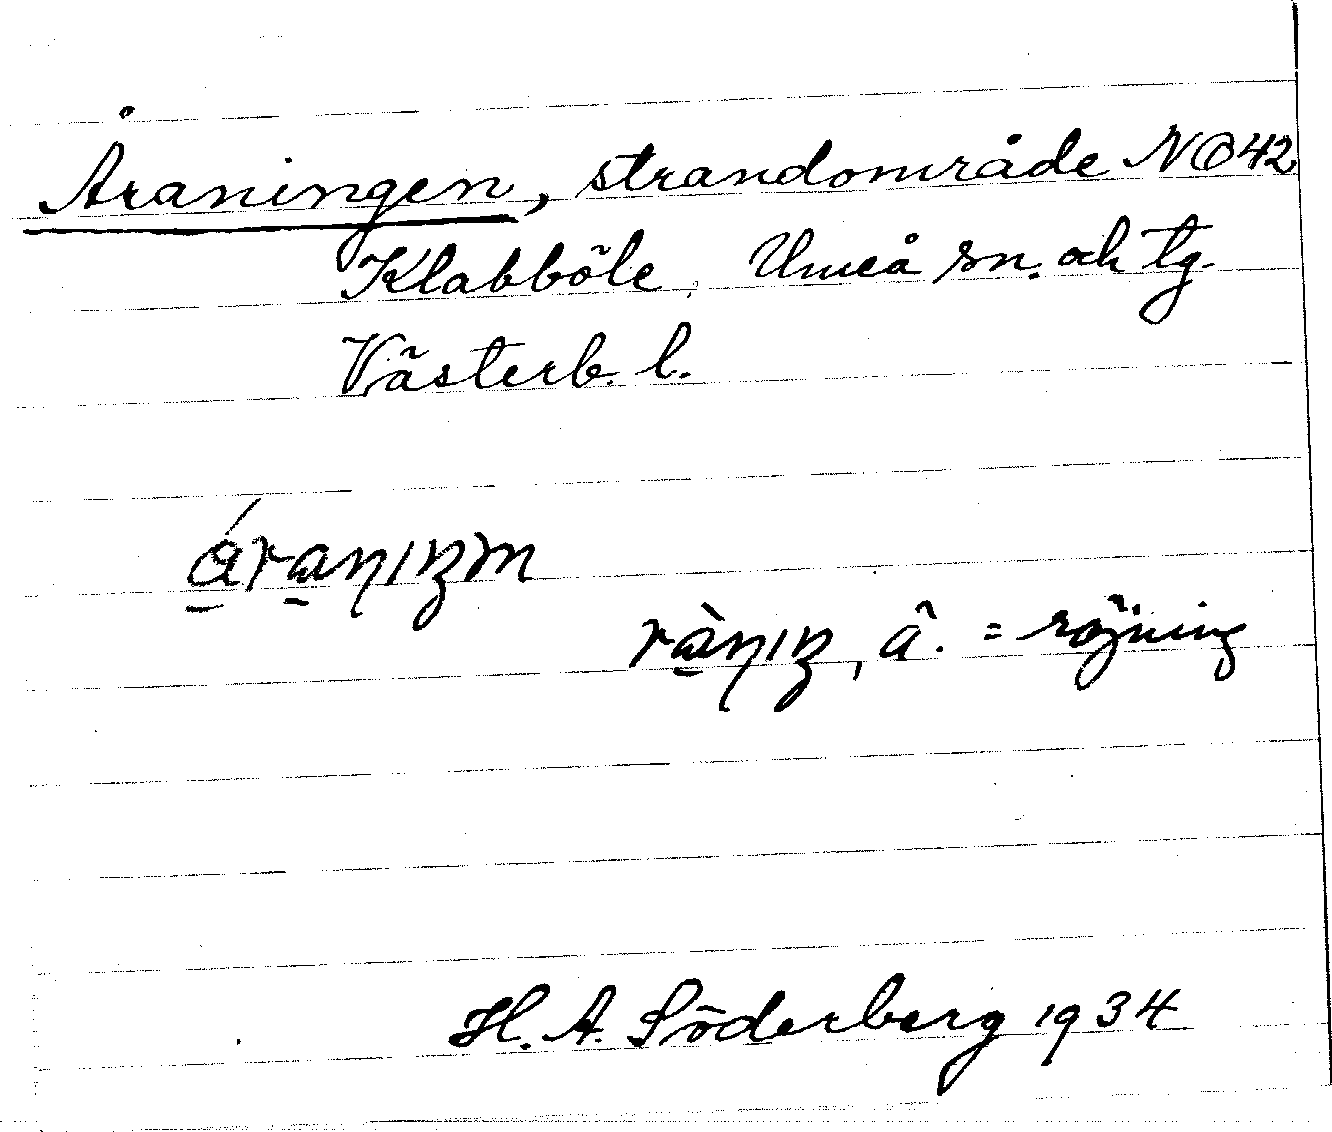 Åraningen, strandområde NO42
Klabböle, Umeå sn. och tg.
Västerb. l.
= röjning
H. A. Söderberg 1934